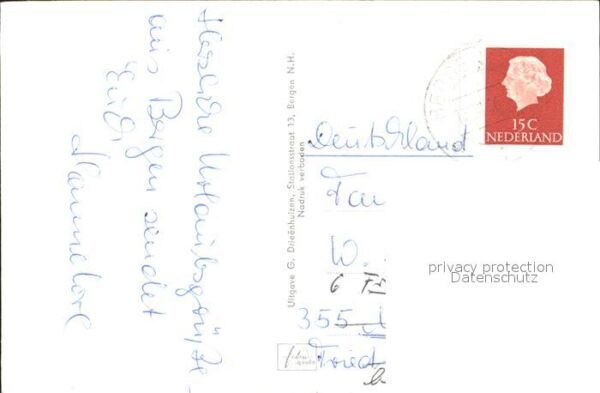 Herzliche Urlaubsgrüße
aus Bergen sendet
Euch
Hannelore
Uitgave G. Drieënhuizen, Stationsstraat 13, Bergen N.H.
Nadruk verboden
15 C
NEDERLAND
Deutschland
Fam
W.
6
355
Fried
privacy protection
Datenschutz